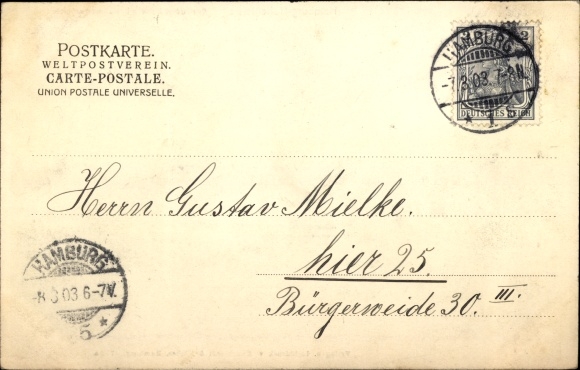 POSTKARTE.
WELTPOSTVEREIN.
CARTE-POSTALE.
UNION POSTALE UNIVERSELLE.
HAMBURG
3.03. 7-8N.
* 1
2
DEUTSCHES REICH
Herrn Gustav Mielke.
hier 25.
Bürgerweide 30. III.
HAMBURG
03 6-7V.
5 *